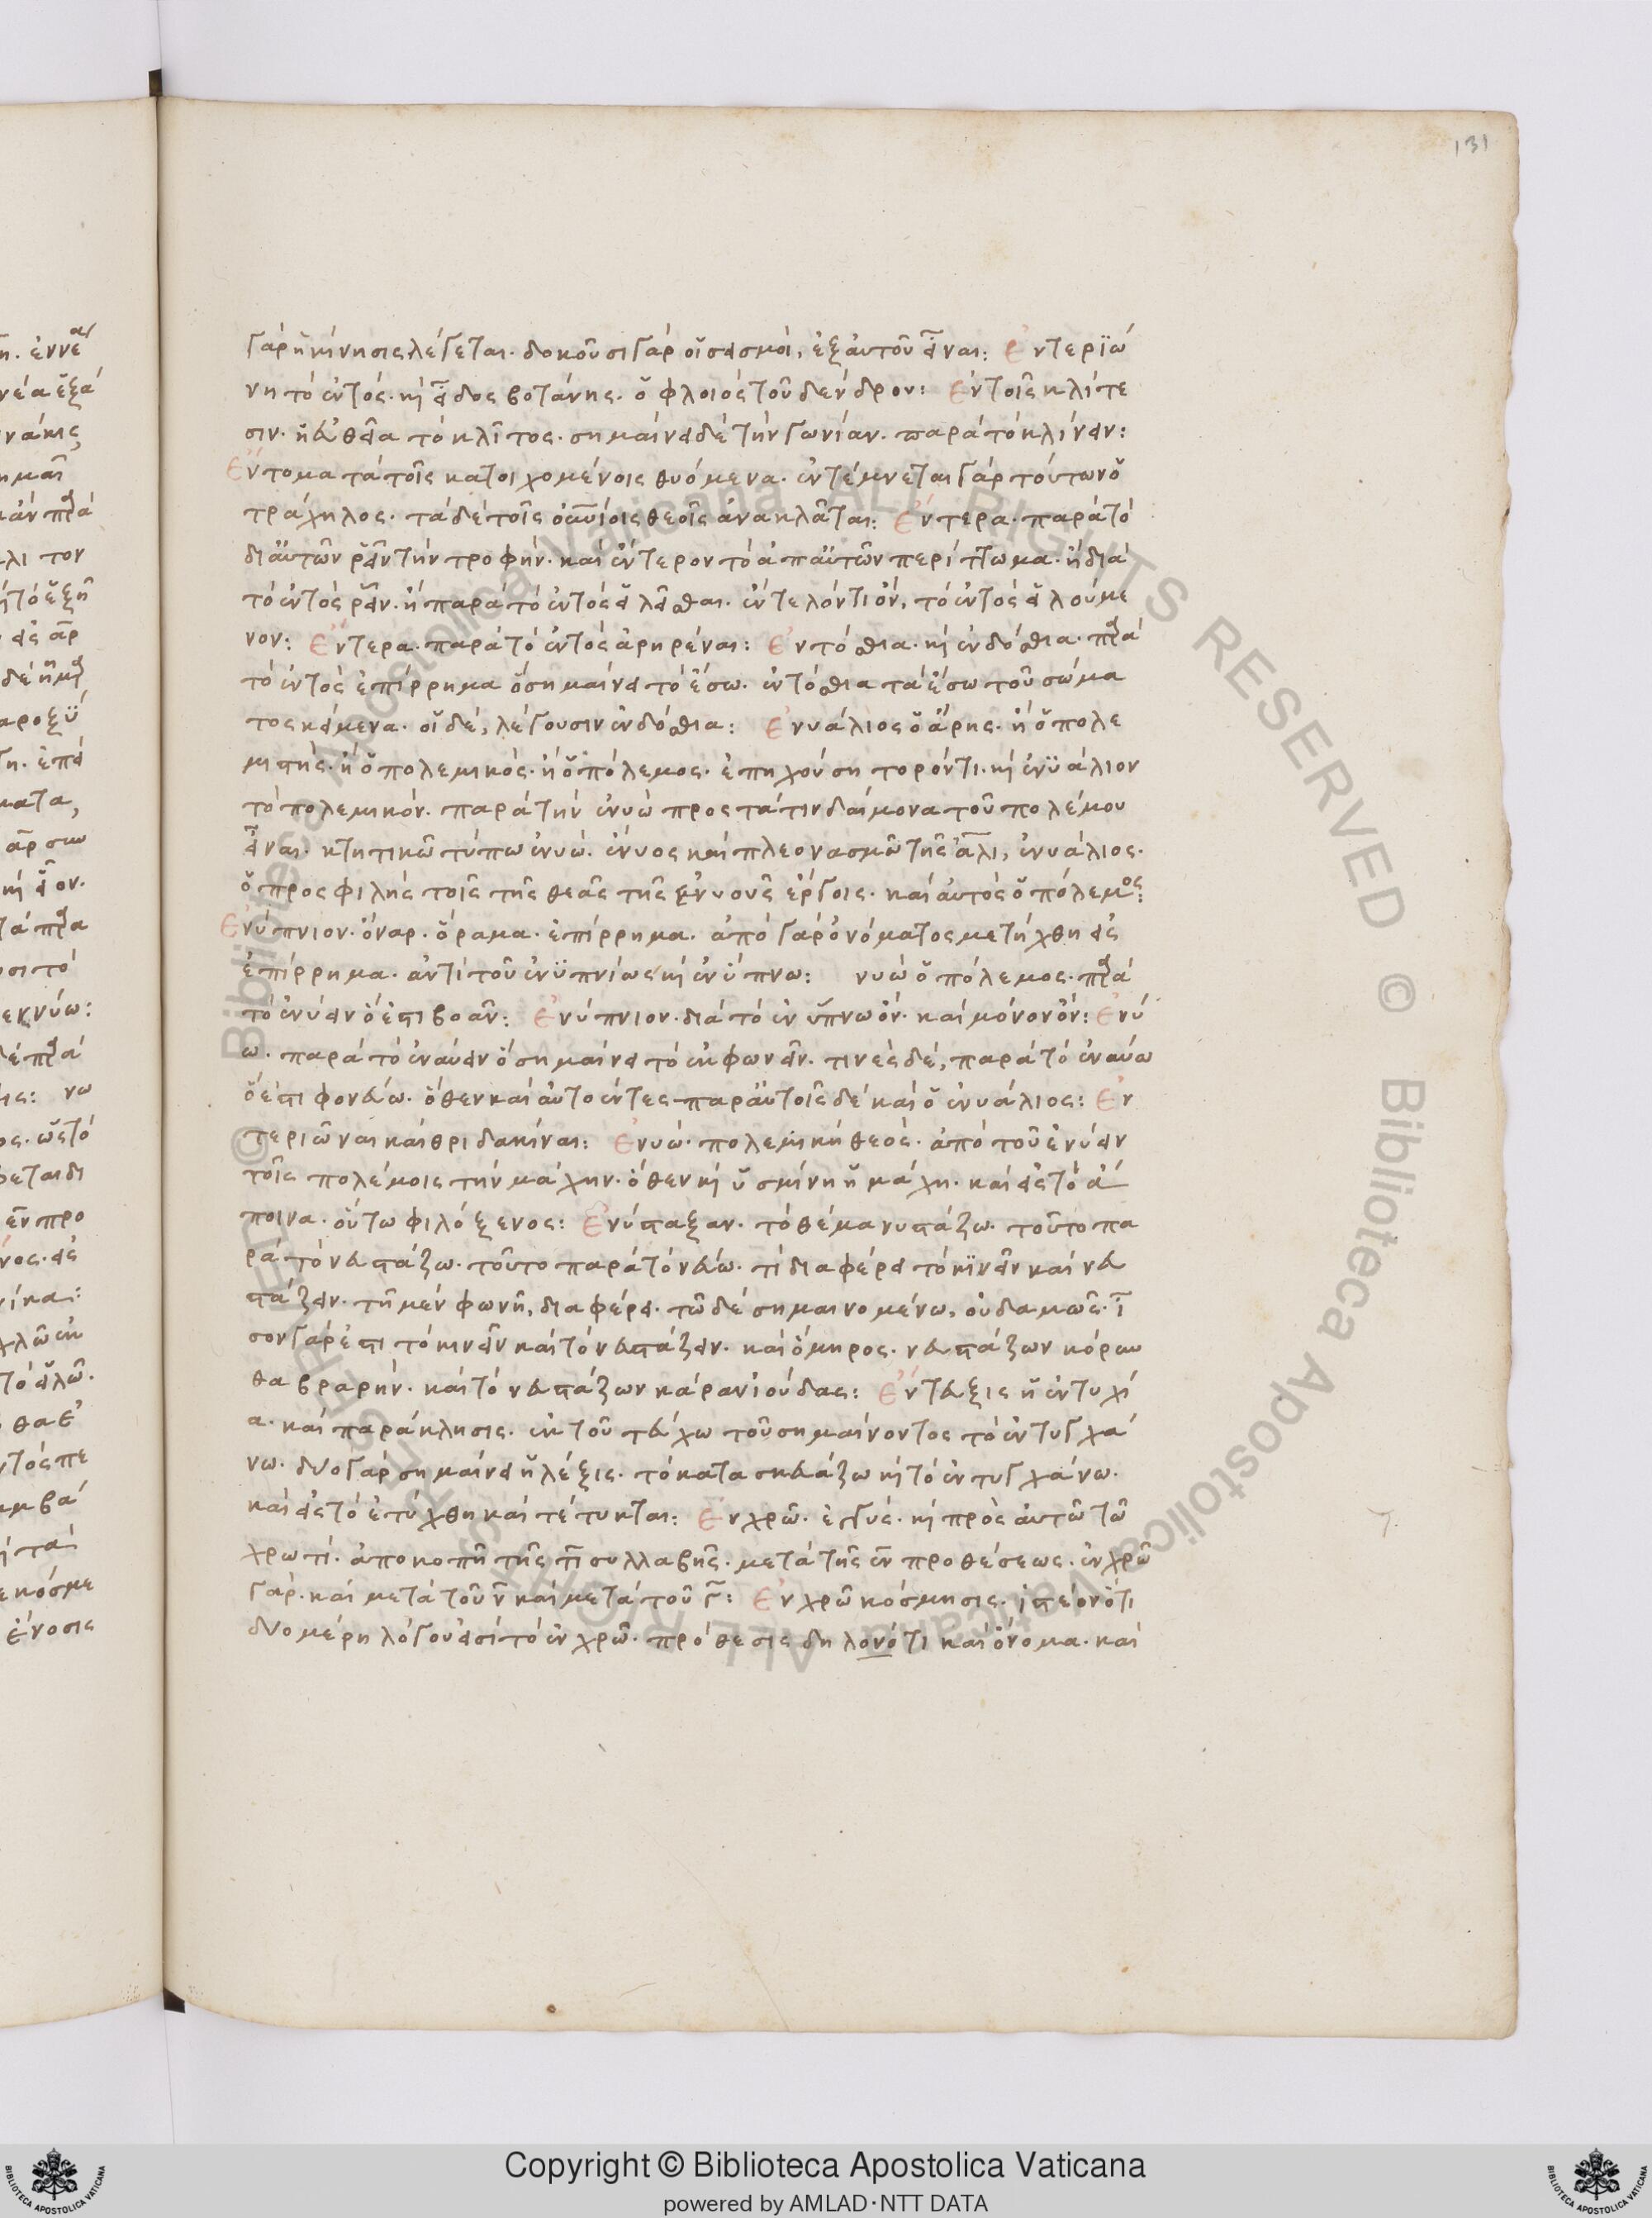 131
γὰρ ἡ κίνησις λέγεται. δοκοῦσι γὰρ οἱ σεισμοὶ, ἐξ αὐτοῦ εἶναι: Ἐντεριώ
νη τὸ ἐντός. καὶ εἶδος βοτάνης. ὁ φλοιὸς τοῦ δένδρου: Ἐν τοῖς κλίτε
σιν. ἡ εὐθεῖα τὸ κλῖτος. σημαίνει δὲ τὴν γωνίαν. παρὰ τὸ κλίνειν:
Ἔντομα τὰ τοῖς κατοιχομένοις θυόμενα. ἐντέμνεται γὰρ τούτων ὁ
τράχηλος. τὰ δὲ τοῖς οὐνίοις θεοῖς ἀνακλᾶται: Ἔντερα. παρὰ τὸ
δι' αὐτῶν ῥεῖν τὴν τροφήν. καὶ ἔντερον τὸ ἀπ' αὐτῶν περίττωμα. ἢ διὰ
τὸ ἐντὸς ῥεῖν. ἢ παρὰ τὸ ἐντὸς εἰλεῖσθαι. ἐντελόντι ὄν, τὸ ἐντὸς εἰλούμε
νον: Ἔντερα. παρὰ τὸ ἐντὸς εἰρηρέναι: Ἐντόσθια. καὶ ἐνδόσθια. παρὰ
τὸ ἐντὸς ἐπίρρημα ὃ σημαίνει τὸ ἔσω. ἐντόσθια τὰ ἔσω τοῦ σώμα
τος κείμενα. οἱ δὲ, λέγουσιν ἐνδόσθια: Ἐνυάλιος ὁ ἄρης. ἢ ὁ πολε
μιστής. ἢ ὁ πολεμικὸς. ἢ ὁ πόλεμος. ἐπηχούση τορόντι. καὶ ἐνυάλιον
τὸ πολεμικόν. παρὰ τὴν ἐνυὼ προστάτιν δαίμονα τοῦ πολέμου
εἶναι. κτητικῶ τύπω ἐνυώ. ἔνυος καὶ πλεονασμῶ τῆς αλι, ἐνυάλιος.
ὁ προσφιλὴς τοῖς τῆς θεᾶς τῆς ἐνυοῦς ἔργοις. καὶ αὐτὸς ὁ πόλεμος:
Ἐνύπνιον. ὄναρ. ὅραμα. ἐπίρρημα. ἀπὸ γὰρ ὀνόματος μετήχθη εἰς
ἐπίρρημα. ἀντὶ τοῦ ἐνυπνίως καὶ ἐν ὕπνω: νυὼ ὁ πόλεμος. παρὰ
τὸ ἐνύειν ὅ ἐστι βοᾶν: Ἐνύπνιον. διὰ τὸ ἐν ὕπνω ὄν. καὶ μόνον ὄν: Ἐνύ
ω. παρὰ τὸ ἐναύειν ὃ σημαίνει τὸ ἐκφωνεῖν. τινὲς δὲ, παρὰ τὸ ἐναύω
ὅ ἐστι φονεύω. ὅθεν καὶ αὐτοέντες παρ' αὐτοῖς δὲ καὶ ὁ ἐνυάλιος: Ἐν
τεριῶναι καὶ θριδακίναι: Ἐνυώ. πολεμικὴ θεός. ἀπὸ τοῦ ἐνύειν
τοῖς πολέμοις τὴν μάχην. ὅθεν καὶ ὑσμίνη ἡ μάχη. καὶ εἰς τὸ ἄ
ποινα. οὕτω φιλόξενος: Ἐνύσταξαν. τὸ θέμα νυστάζω. τοῦτο πα
ρὰ τὸ νευστάζω. τοῦτο παρὰ τὸ νεύω. τί διαφέρει τὸ κινεῖν καὶ νευ
στάζειν. τῆ μὲν φωνῆ, διαφέρει. τῶ δὲ σημαινομένω, οὐδαμῶς. ἶ
σον γάρ ἐστι τὸ κινεῖν καὶ τὸ νευστάζειν. καὶ ὅμηρος. νευστάζων κόρυ
θα βραρήν. καὶ τὸ νευστάζων κάρανἰούδας: Ἔντευξις ἡ ἐντυχί
α. καὶ παράκλησις. ἐκ τοῦ τεύχω τοῦ σημαίνοντος τὸ ἐντυγχά
νω. δύο γὰρ σημαίνει ἡ λέξις. τὸ κατασκευάζω καὶ τὸ ἐντυγχάνω.
καὶ εἰς τὸ ἐτύχθη καὶ τέτυκται: Ἐν χρῶ. ἐγγύς. καὶ πρὸς αὐτῶ τῶ
χρωτί. ἀποκοπῆ τῆς τι συλλαβῆς. μετὰ τῆς ἐν προθέσεως. ἐν χρῶ
γάρ. καὶ μετὰ τοῦ ν καὶ μετὰ τοῦ γ: Ἐν χρῶ κόσμησις. ἰστέον ὅτι
δύο μέρη λόγου εἰσὶ τὸ ἐν χρῶ. πρόθεσις δηλονότι καὶ ὄνομα. καὶ
© Biblioteca Apostolica Vaticana ALL RIGHTS RESERVED
Copyright © Biblioteca Apostolica Vaticana
powered by AMLAD·NTT DATA